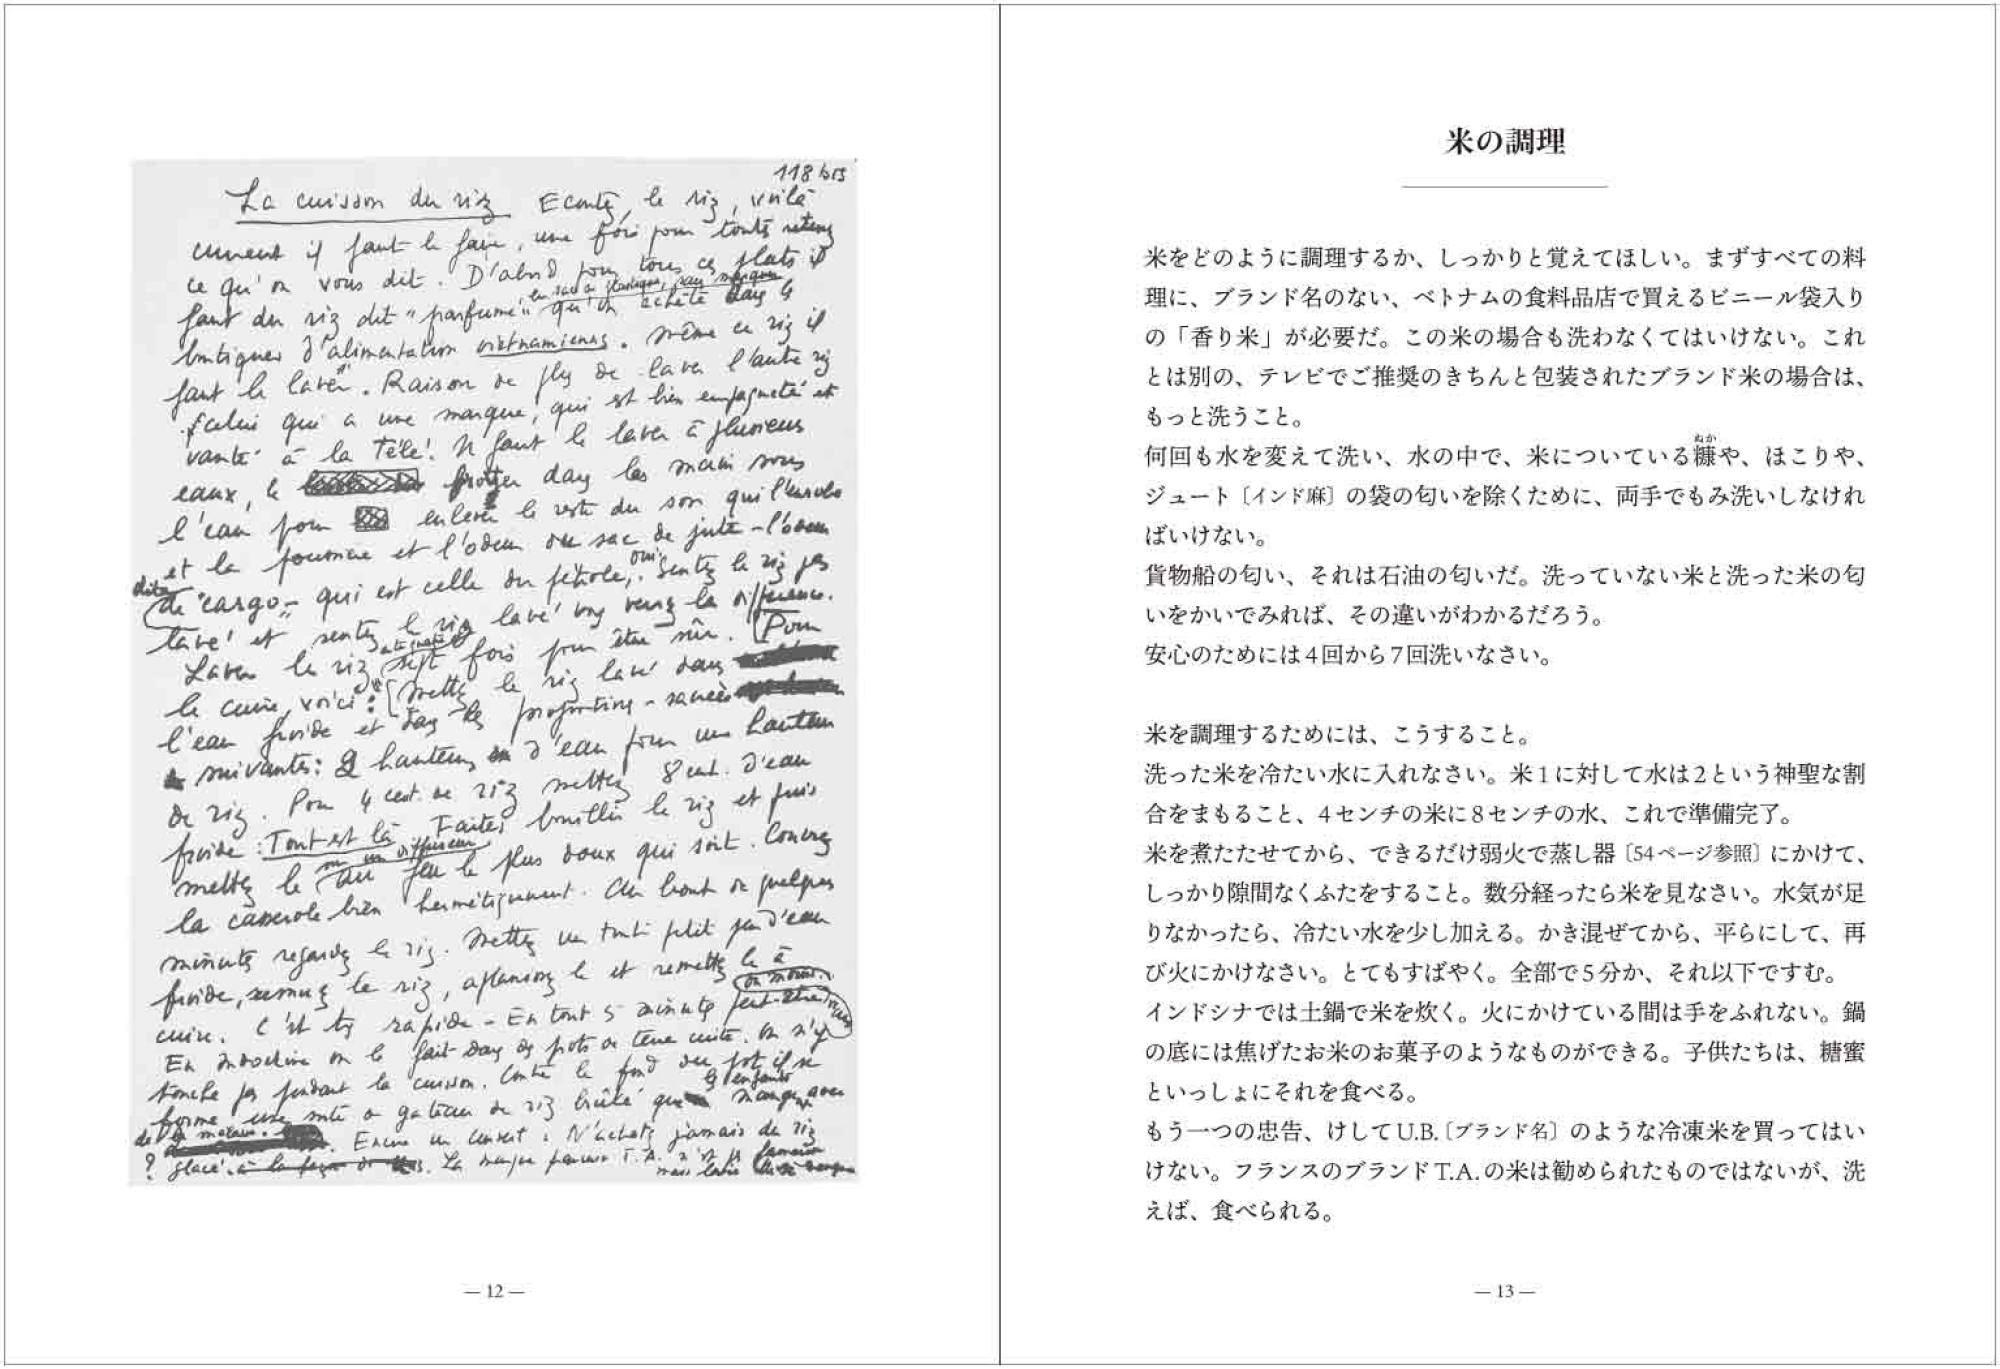 118 bis
La cuisson du riz Ecoutez, le riz, voilà
comment il faut le faire, une fois pour toutes retenez
ce qu'on vous dit. D'abord pour tous ces plats il
en sac en plastique, sans marque
faut du riz dit "parfumé" qu'on achète dans les
boutiques d'alimentation vietnamiennes. Même ce riz il
faut le laver. Raison de plus de laver l'autre riz
celui qui a une marque, qui est bien empaqueté et
vanté à la Télé! Il faut le laver à plusieurs
eaux, le frotter dans les mains sous
l'eau pour enlever le reste du son qui l'enrobe
et la poussière et l'odeur du sac de jute - l'odeur
dite
de "cargo" - qui est celle du pétrole, oui. Sentez le riz pas
lavé et sentez le riz lavé vous verrez la différence.
Laver le riz sept fois pour être sûr. Pour
le cuire, voici: Mettez le riz lavé dans
l'eau froide et dans les proportions - sacrées
suivantes: 2 hauteurs d'eau pour une hauteur
de riz. Pour 4 cent. de riz mettez 8 cent. d'eau
froide: Tout est là. Faites bouillir le riz et puis
sur un diffuseur
mettez le au feu le plus doux qui soit. Couvrez
la casserole bien hermétiquement. Au bout de quelques
minutes regardez le riz. Mettez un tout petit peu d'eau
froide, remuez le riz, aplanissez le et remettez le à
cuire. C'est très rapide - En tout 5 minutes peut-être
ou moins
En Indochine on le fait dans des pots de terre cuite. On n'y
touche pas pendant la cuisson. Contre le fond du pot il se
les enfants
forme une sorte de gateau de riz brûlé que mangent avec
de la mélasse.
Encore un conseil: N'achetez jamais du riz
glacé. La marque T.A. n'est pas
mais lavé
— 12 —
米の調理
米をどのように調理するか、しっかりと覚えてほしい。まずすべての料
理に、ブランド名のない、ベトナムの食料品店で買えるビニール袋入り
の「香り米」が必要だ。この米の場合も洗わなくてはいけない。これ
とは別の、テレビでご推奨のきちんと包装されたブランド米の場合は、
もっと洗うこと。
何回も水を変えて洗い、水の中で、米についている糠ぬかや、ほこりや、
ジュート〔インド麻〕の袋の匂いを除くために、両手でもみ洗いしなけれ
ばいけない。
貨物船の匂い、それは石油の匂いだ。洗っていない米と洗った米の匂
いをかいでみれば、その違いがわかるだろう。
安心のためには4回から7回洗いなさい。
米を調理するためには、こうすること。
洗った米を冷たい水に入れなさい。米1に対して水は2という神聖な割
合をまもること、4センチの米に8センチの水、これで準備完了。
米を煮たたせてから、できるだけ弱火で蒸し器〔54ページ参照〕にかけて、
しっかり隙間なくふたをすること。数分経ったら米を見なさい。水気が足
りなかったら、冷たい水を少し加える。かき混ぜてから、平らにして、再
び火にかけなさい。とてもすばやく。全部で5分か、それ以下ですむ。
インドシナでは土鍋で米を炊く。火にかけている間は手をふれない。鍋
の底には焦げたお米のお菓子のようなものができる。子供たちは、糖蜜
といっしょにそれを食べる。
もう一つの忠告、けしてU.B.〔ブランド名〕のような冷凍米を買ってはい
けない。フランスのブランドT.A.の米は勧められたものではないが、洗
えば、食べられる。
— 13 —